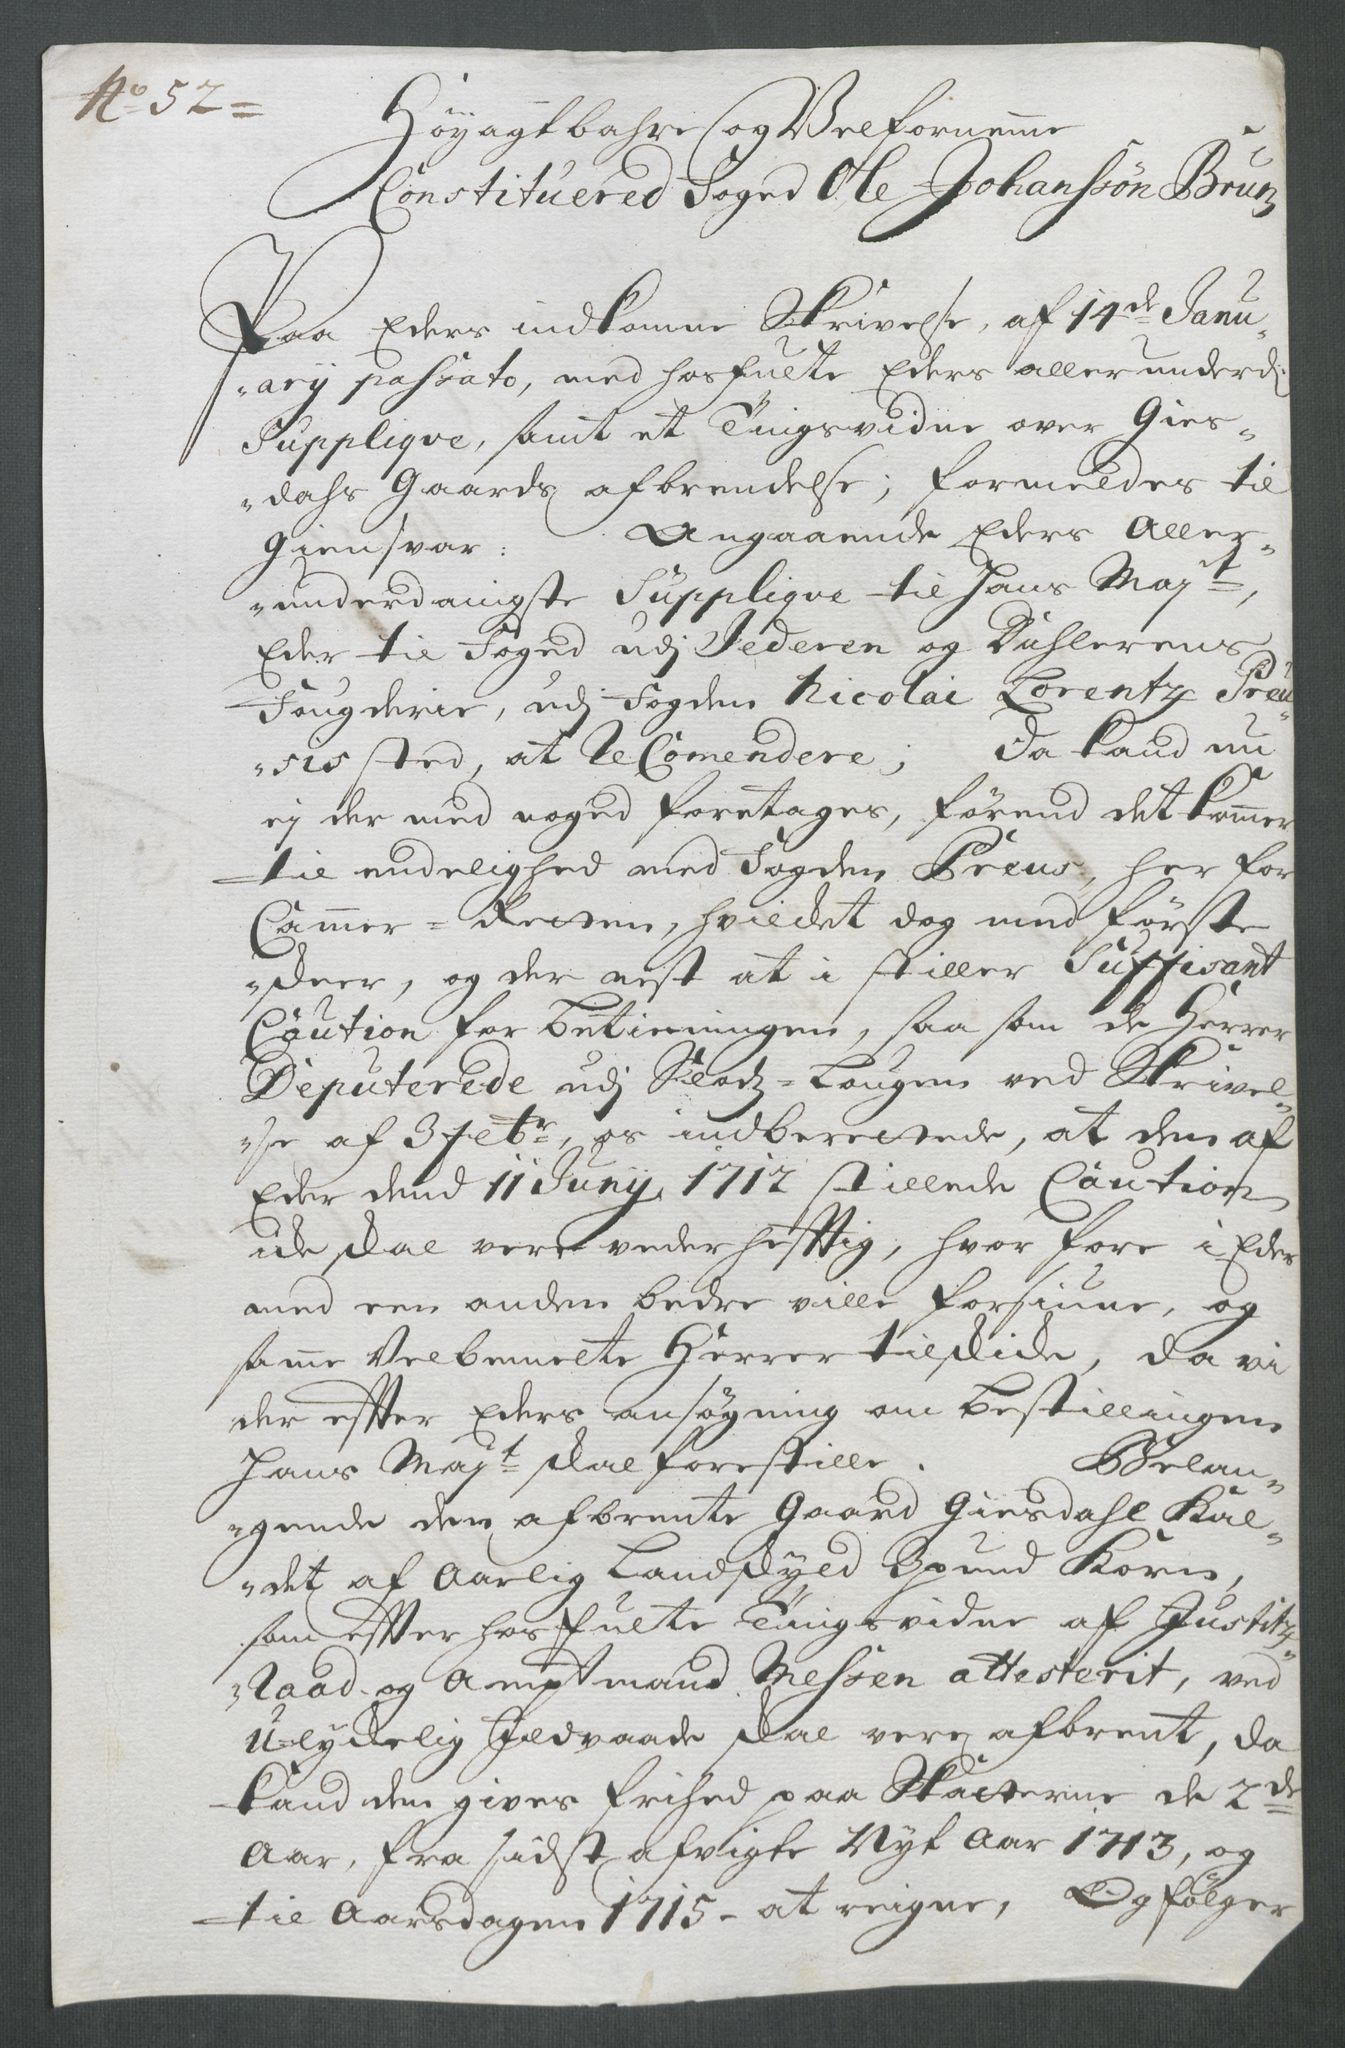 No 52=
Höyagtbahre og Velfornemme
Constituered Foged Ole Johanssön Brun
Paa Eders indkomne Skrivelse, af 14de Janu-
-arij passato, med hosfulte Eders allerunderd:
Supplique, samt et Tingsvidne over Gies-
-dahs Gaards afbrendelse; formeldes til
Giensvar: Angaaende Eders Aller-
-underdanigste Supplique til Hans Mayt,
Eder til Foged udj Jederen og Dahlerens
Fougderie, udj Fogden Nicolai Lorentz Preu-
-sis sted, at ReComendere; Da kand nu
ej der med noged foretages, förend det kommer
til endelighed med Fogden Preus, her for
Cammer=Retten, hvilcket dog med förste
skeer, og der nest at i stiller Suffisant
Caution for betieningen, saa som de Herrer
Deputerede udj Slotz=Lougen ved Skrivel-
-se af 3 Febr, os indberettede, at den af
Eder dend 11 Junij 1712 stillede Caution
icke skal vere vederhefftig, hvor fore i Eder
med een anden bedre ville forsiune, og
samme Velbemelte Herrer tilskicke, da vi
der effter Eders ansögning om bestillingen
Hans Mayt skal forestille. Belan-
-gende den afbrente Gaard Giesdahl Kal-
-det af Aarlig Landskyld 3 pund Korn,
som effter hosfulte Tingsvidne af Justitz-
-Raad og Amptmand Nessen attesterit, ved
U-lyckelig Ildvaade skal vere afbrent, da
kand den gives frihed paa Skatterne de 2de
Aar, fra sidst afvigte Nyt Aar 1713, og
til Aarsdagen 1715 - at reigne, Og fölger